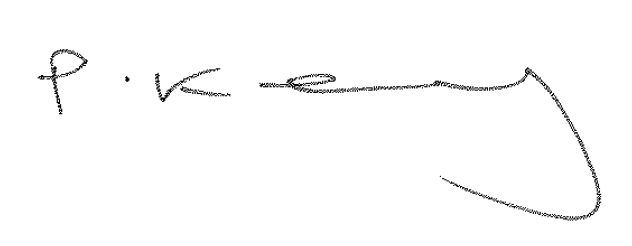 P. Key